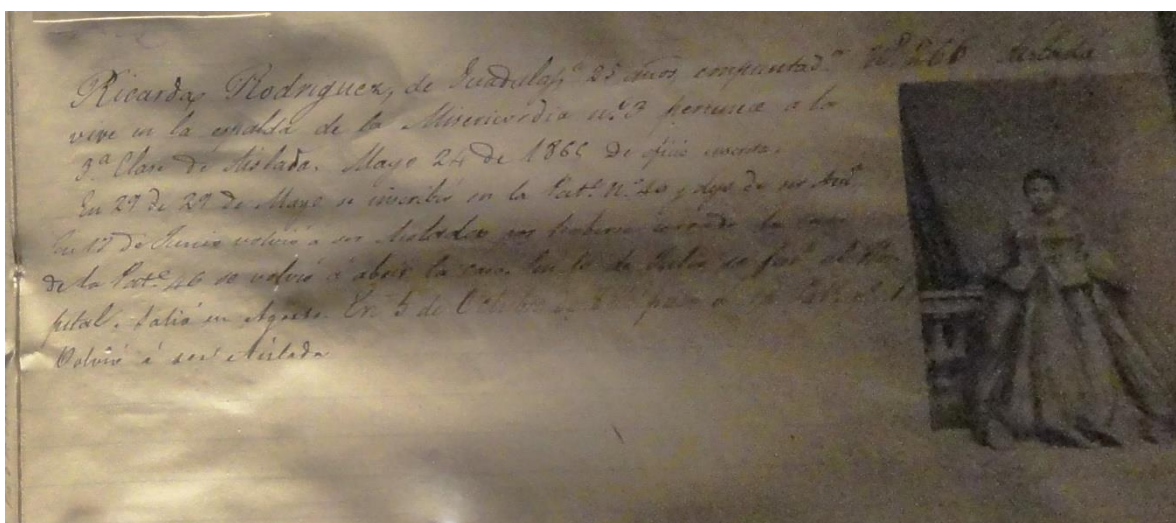 Ricarda Rodriguez, de Guadalaj.ª 25 años, empuntad.ª Nº 266 Aislada
vive en la espalda de la Misericordia nº 3 pertenece a la
3.ª Clase de Aislada. Mayo 24 de 1865 De oficio
En 27 de 27 de Mayo se inscribió en la Pat.e Nº 40 y dejó de ser
En 12 de Junio volvió a ser Aislada por haberse cerrado la casa
de la Pat.e 46 se volvió á abrir la casa. En 10 de Julio se fué al Hos
pital. Salió en Agosto. En 5 de Octubre
Volvió á ser Aislada